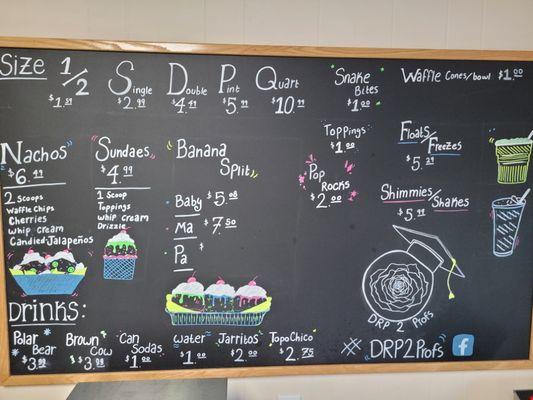 Size 1/2 Single Double Pint Quart Snake Bites Waffle Cones/bowl $1.00
$1.59 $2.99 $4.19 $5.99 $10.99 $1.00
Nachos
$6.49
2 Scoops
Waffle Chips
Cherries
Whip cream
Candied Jalapeños
Sundaes
$4.99
1 Scoop
Toppings
whip cream
Drizzle
Banana
Split
Baby $5.08
Ma $7.50
Pa $
Toppings
$1.00
Pop
Rocks
$2.00
Floats/
Freezes
$5.29
Shimmies/
Shakes
$5.99
DRP 2 Profs
Drinks:
Polar Bear $3.99
Brown Cow $3.99
Can Sodas $1.00
Water $1.00
Jarritos $2.00
TopoChico $2.75
# DRP2Profs f